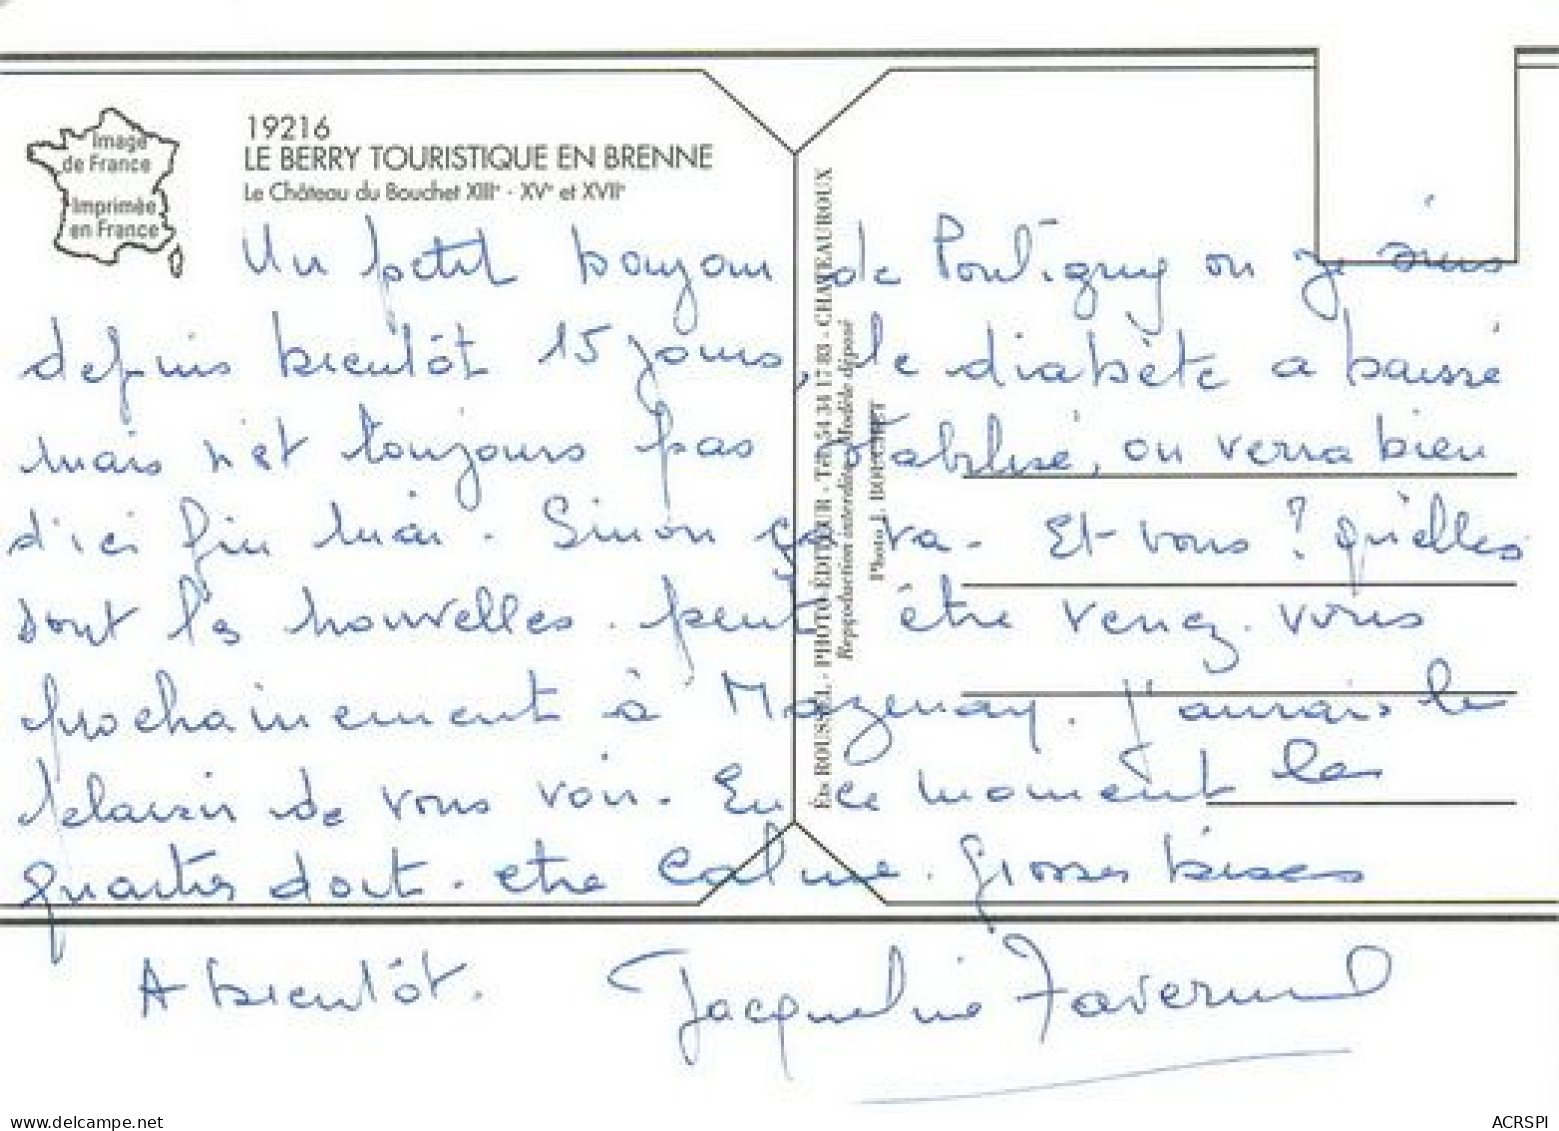 Image
de France
Imprimée
en France
19216
LE BERRY TOURISTIQUE EN BRENNE
Le Château du Bouchet XIIIe - XVe et XVIIe
Éts ROUSSEL - PHOTO-ÉDITEUR - Tél. 54.34 17 83 - CHATEAUROUX
Reproduction interdite - Modèle déposé
Photo J. BOUCHET
Un petit bonjour de Pontigny ou je suis
depuis bientôt 15 jours, le diabète a baissé
mais n'est toujours pas stabilisé, on verra bien
d'ici fin mai. Sinon ça va. Et vous ? Qu'elles
sont les nouvelles. peut être venez-vous
prochainement à Mazenay. J'aurais le
plaisir de vous voir. En ce moment le
quartier doit être calme. Grosses bises
A bientôt. Jacqueline
www.delcampe.net
ACRSPI